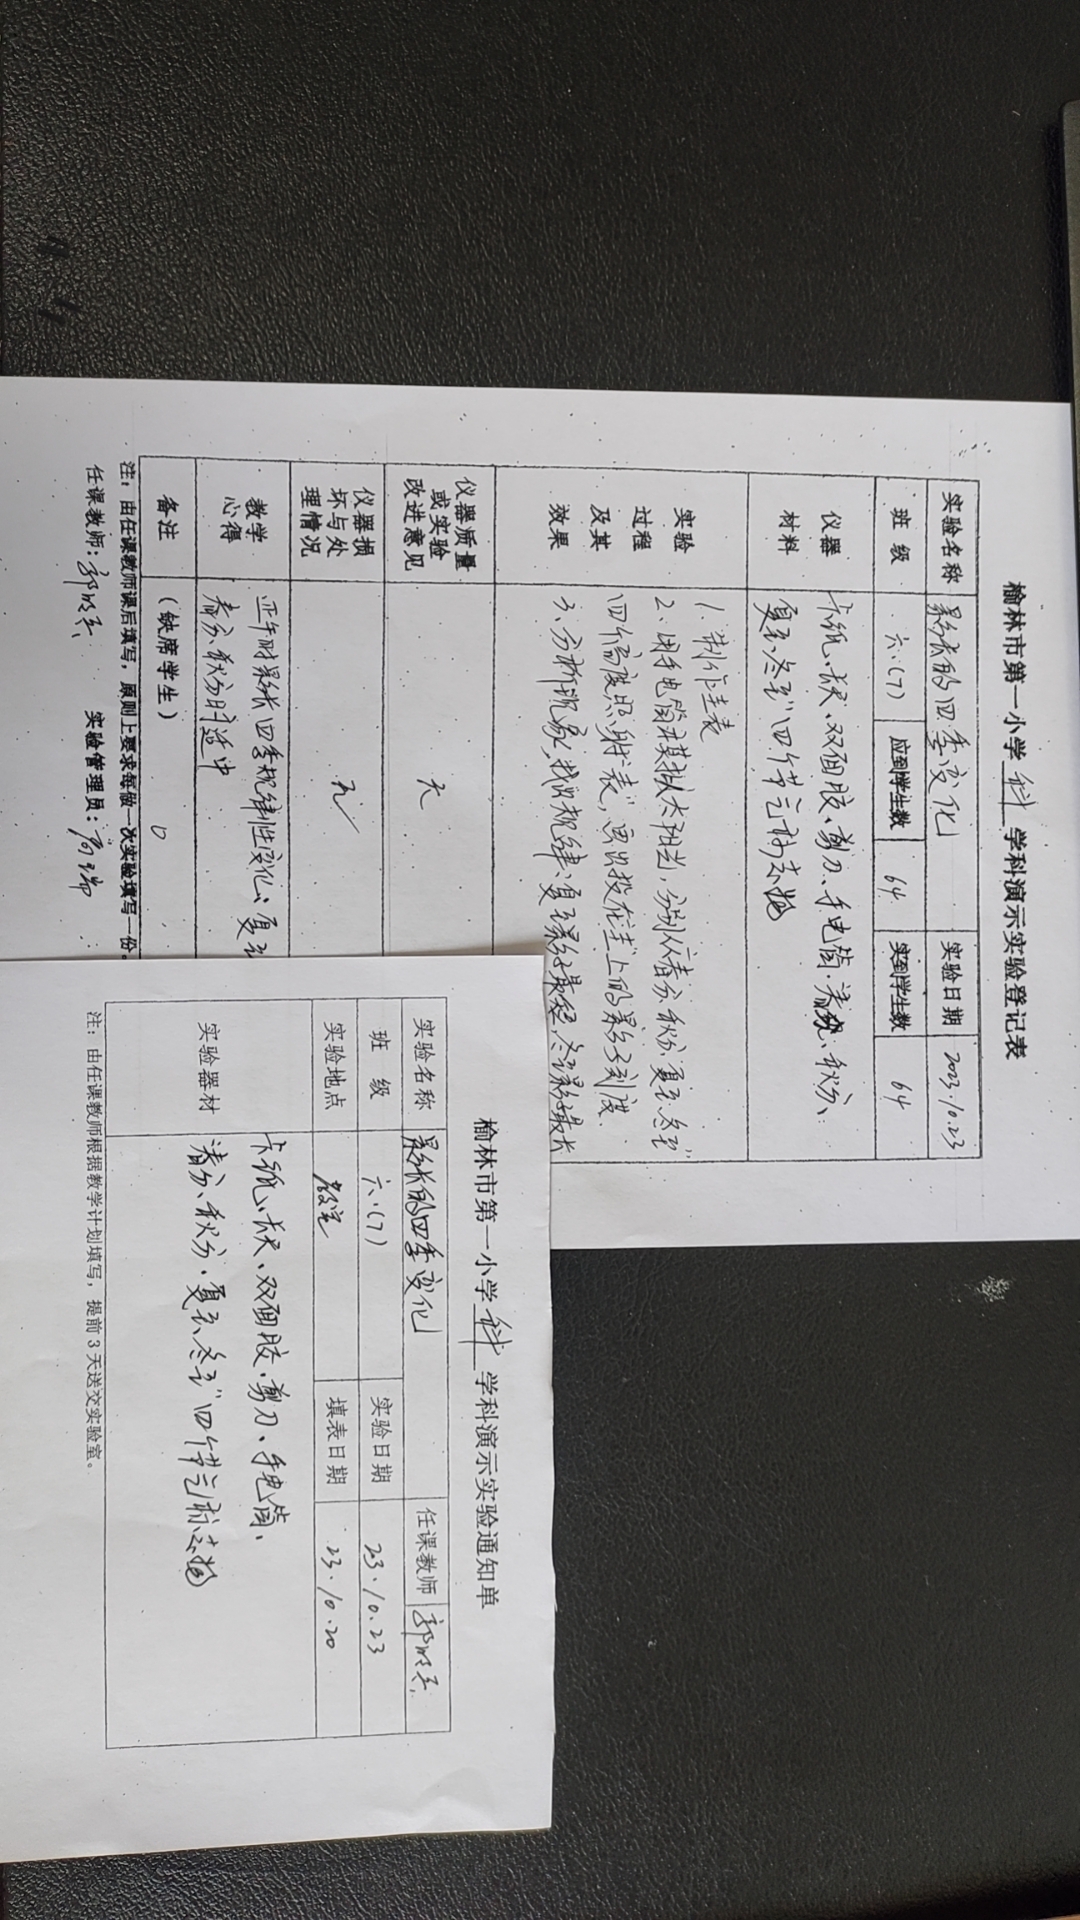 榆林市第一小学 科 学科演示实验登记表
实验名称 影长的四季变化 实验日期 2023.10.23
班 级 六.(7) 应到学生数 64 实到学生数 64
仪器 卡纸、长尺、双面胶、剪刀、手电筒、春分、秋分、
材料 夏至、冬至"四个节气标志物
1、制作圭表
实验 2、用手电筒来模拟太阳光,分别从"春分、秋分、夏至、冬至"
过程 四个高度照射"表",画出投在圭上的影子刻度.
及其 3、分析现象,找出规律、夏至影子最短,冬至影子最长
效果
仪器质量
或实验 无
改进意见
仪器损
坏与处 无
理情况
教学 正午时影长四季规律性变化:夏至
心得 春分、秋分时适中
备注 (缺席学生) 0
注:由任课教师课后填写,原则上要求每做一次实验填写一份。
任课教师:郭 实验管理员:高瑞
榆林市第一小学 科 学科演示实验通知单
实验名称 影长的四季变化 任课教师 郭
班 级 六.(7) 实验日期 23.10.23
实验地点 教室 填表日期 23.10.20
实验器材 卡纸、长尺、双面胶、剪刀、手电筒、
春分、秋分、夏至、冬至"四个节气标志物
注:由任课教师根据教学计划填写,提前 3 天送交实验室。